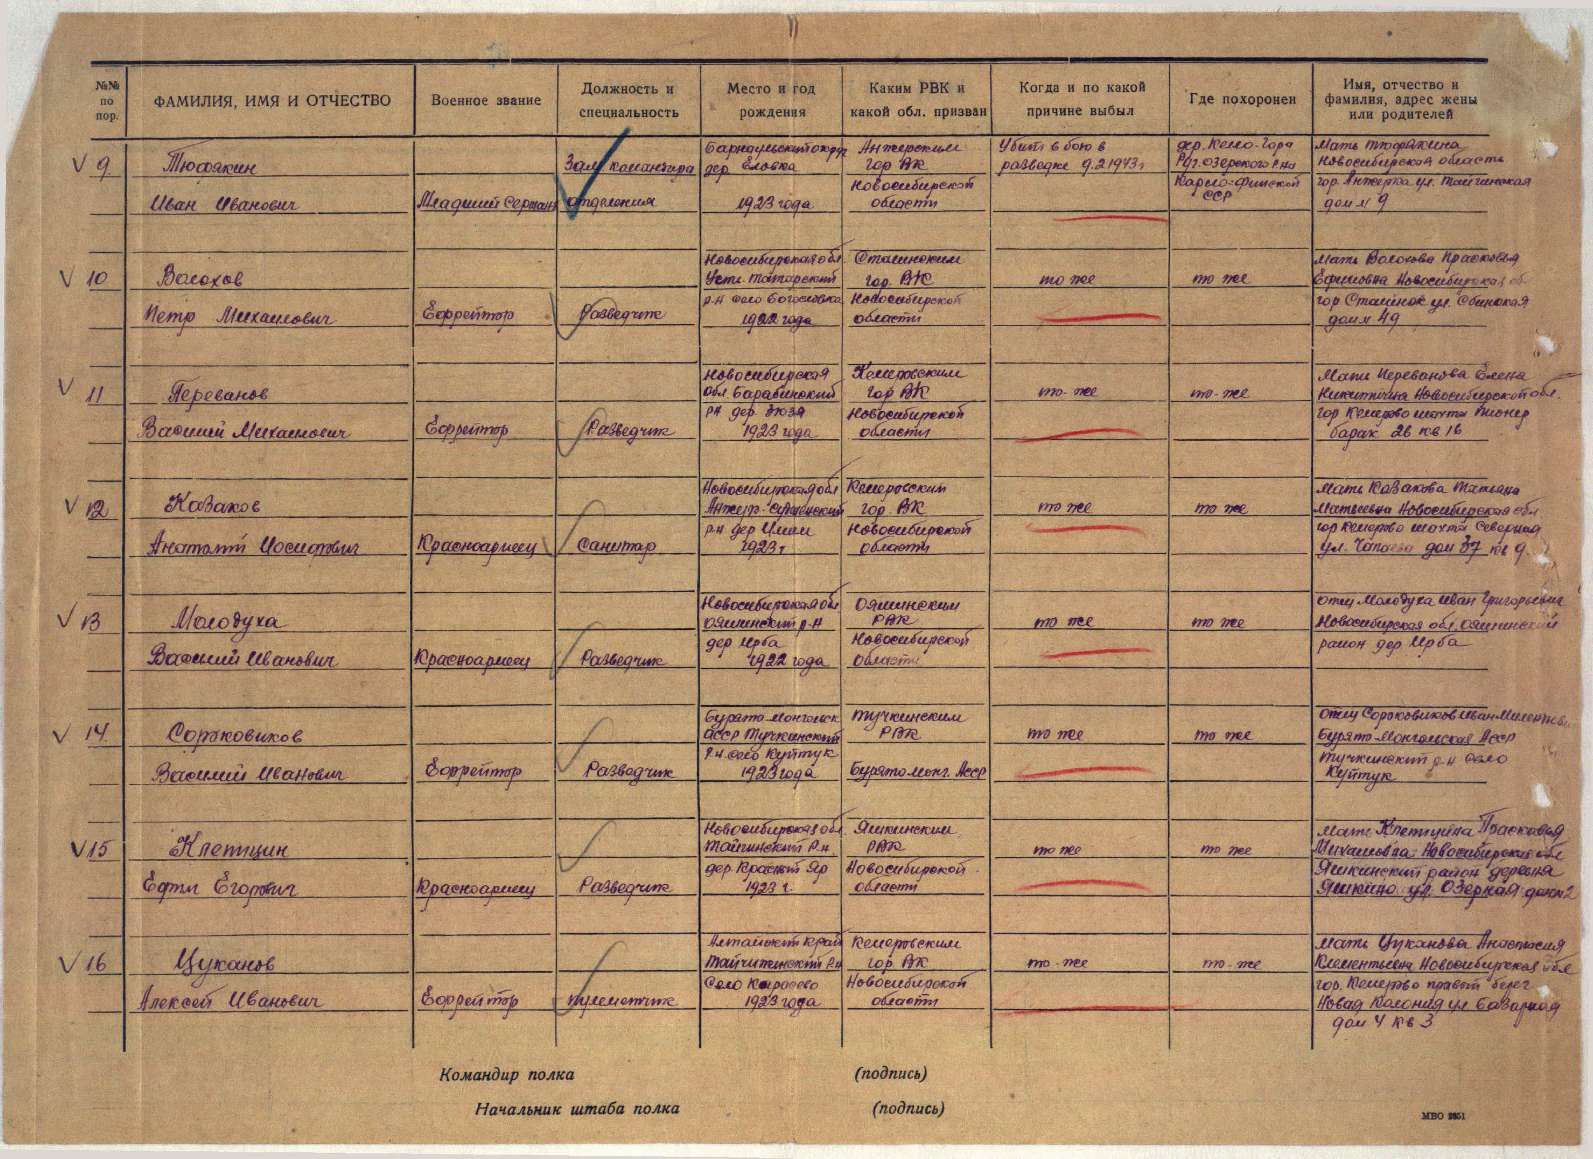 №№ по пор.
ФАМИЛИЯ, ИМЯ И ОТЧЕСТВО
Военное звание
Должность и специальность
Место и год рождения
Каким РВК и какой обл. призван
Когда и по какой причине выбыл
Где похоронен
Имя, отчество и фамилия, адрес жены или родителей
9
Тюфякин
Иван Иванович
Младший Сержант
Зам. командира
отделения
дер. Еловка
1923 года
Анжерским
гор ВК
Новосибирской
области
Убит в бою в
разведке 9.2.1943г
дер. Кемо-Гора
Карело-Финской
ССР
Мать Тюфякина
Новосибирская область
гор. Анжерка ул. Тайгинская
дом № 9
10
Волохов
Петр Михайлович
Ефрейтор
Разведчик
Новосибирская обл
Усть. Татарский
р-н село Богословка
1922 года
Сталинским
гор. ВК
Новосибирской
области
то же
то же
Мать Волохова Прасковья
Ефимовна Новосибирская об
гор Сталинск ул.
дом № 49
11
Переванов
Василий Михайлович
Ефрейтор
Разведчик
Новосибирская
обл. Барабинский
р-н дер. Зюзя
1923 года
Кемеровским
гор ВК
Новосибирской
области
то-же
то-же
Мать Переванова Елена
Никитична Новосибирской обл.
гор Кемерово шахта Пионер
барак 26 кв 16
12
Казаков
Анатолий Иосифович
Красноармеец
Санитар
Новосибирская обл
Анжеро-Судженский
р-н дер
1923 г
Кемеровским
гор. ВК
Новосибирской
области
то же
то же
Мать Казакова Татьяна
Матвеевна Новосибирская обл
гор Кемерово шахта Северная
ул. Чапаева дом 37 кв 9.
13
Молодуха
Василий Иванович
Красноармеец
Разведчик
Новосибирская обл
Ояшинский р-н
дер Ирба
1922 года
Ояшинским
РВК
Новосибирской
области
то же
то же
отец Молодуха Иван Григорьевич
Новосибирская обл. Ояшинский
район дер Ирба
14.
Сороковиков
Василий Иванович
Ефрейтор
Разведчик
Бурято-Монгольск
АССР Тункинский
р.н. село Куйтук
1923 года
Тункинским
РВК
Бурято монг. АССР
то же
то же
отец Сороковиков Иван
Бурято-Монгольская АССР
Тункинский р-н село
Куйтук
15
Клепицин
Ефим Егорович
Красноармеец
Разведчик
Новосибирская обл
Тайгинский р.н
дер. Красный Яр
1923 г.
Яшкинским
РВК
Новосибирской
области
то же
то же
Мать Клепицина Прасковья
Михайловна Новосибирская обл
Яшкинский район деревня
Яшкино ул. Озерная дом № 2
16
Цуканов
Алексей Иванович
Ефрейтор
пулеметчик
Алтайский край
1923 года
Кемеровским
гор ВК
Новосибирской
области
то-же
то-же
Мать Цуканова Анастасия
Клементьевна Новосибирская обл
гор. Кемерово правый берег
Новая Колония ул Базарная
дом 4 кв 3
Командир полка (подпись)
Начальник штаба полка (подпись)
МВО